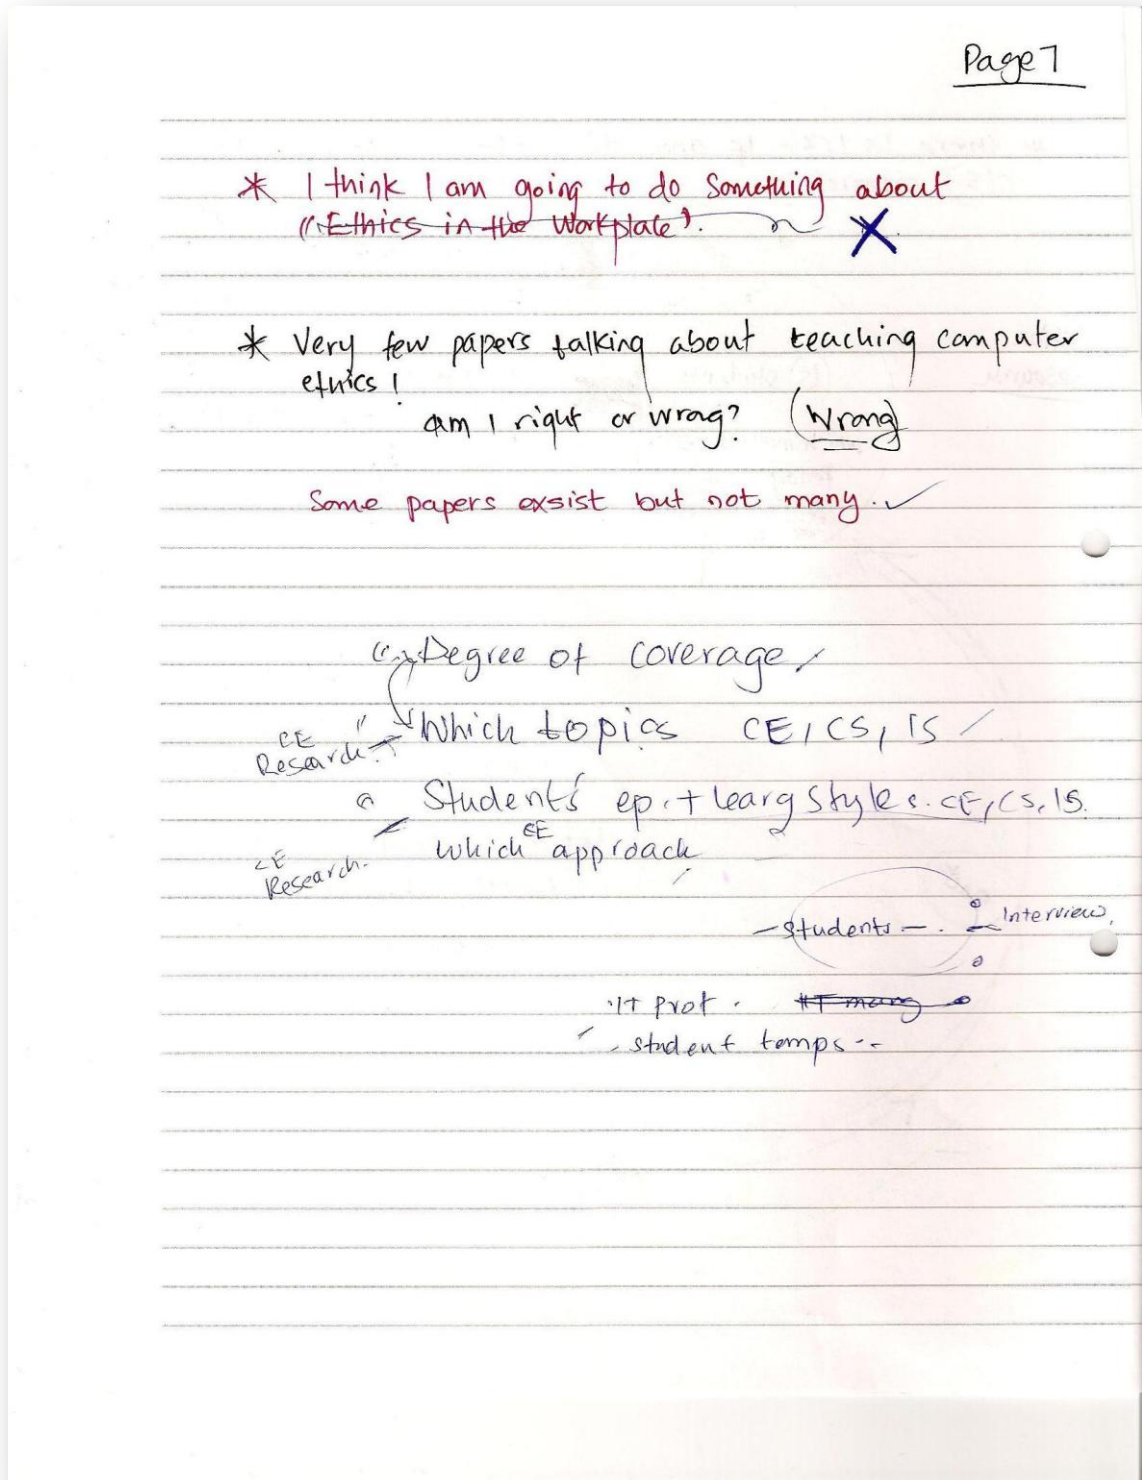 Page 7
* I think I am going to do something about
"Ethics in the Workplace".
* Very few papers talking about teaching computer
ethics!
am I right or wrong? (Wrong)
Some papers exsist but not many.
Degree of coverage
Which topics CE, CS, IS
CE
Research
Students' ep. + learg styles. CE, CS, IS.
which CE approach
CE
Research.
- Students - . - Interview.
IT prof.
student temps